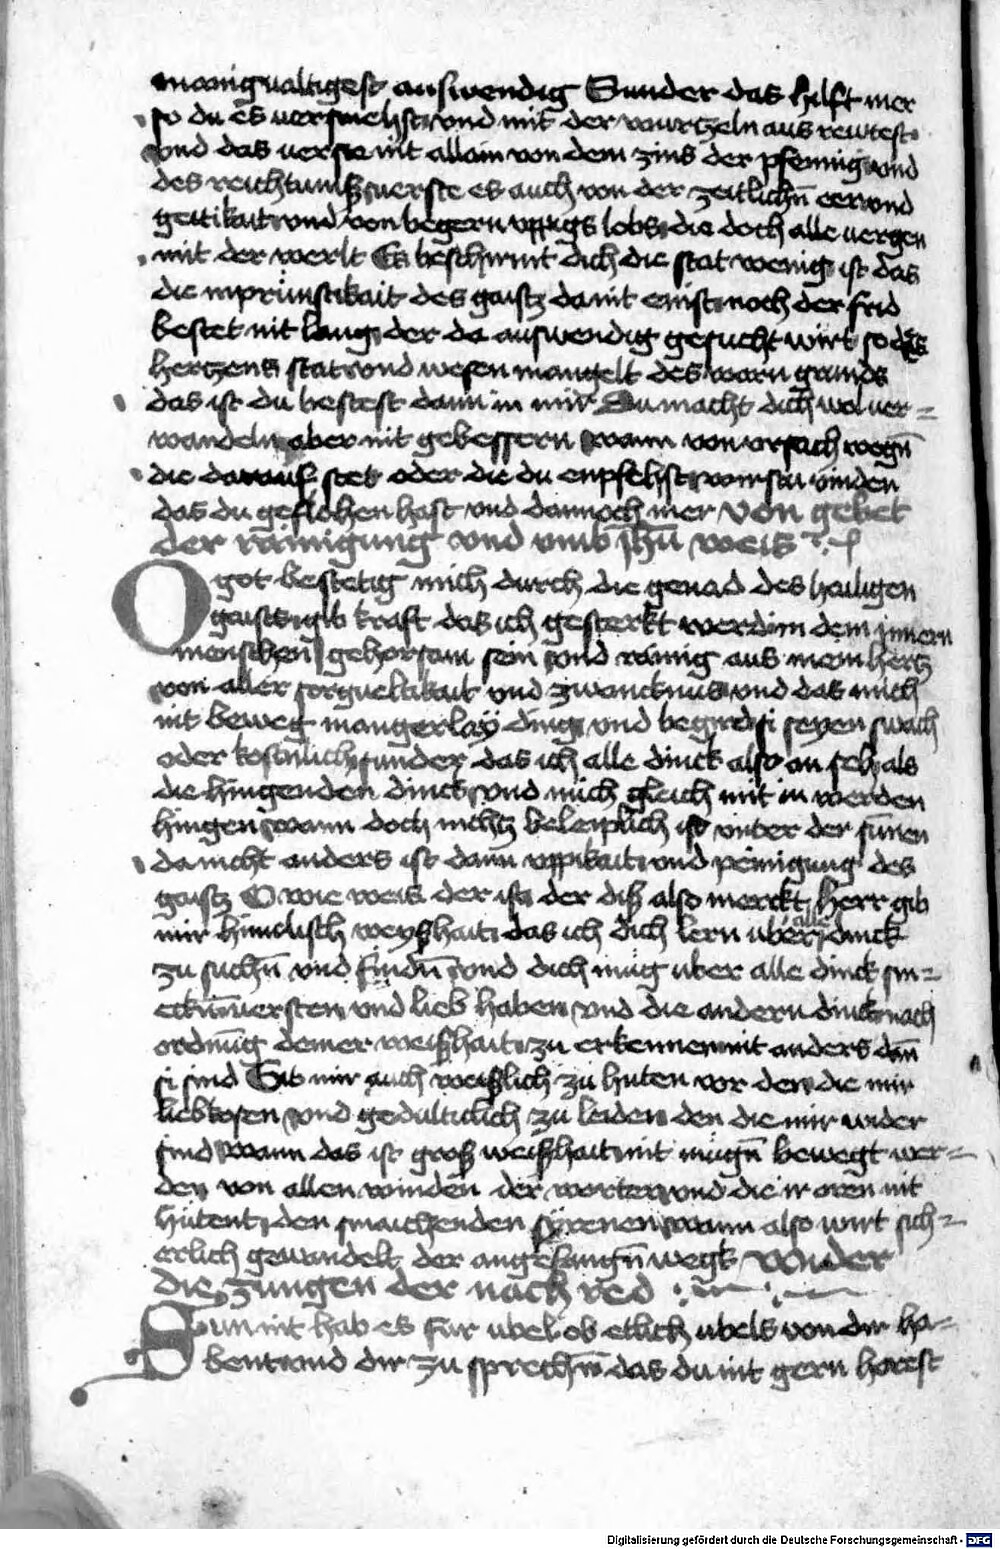 manigualtigest auswendig Sunder das hilft mer
so du es uersmehst vnd mit der wurtzeln aus rewtest
vnd das uerste nit allain von dem zins der pfennig vnd
des reichtums uerste es auch von der zeitlichn̄ eer vnd
geitikait vnd von begern vppigs lobs die doch alle uergen
mit der werlt Es beschirmt dich die stat wenig ist das
die inprünstikait des gaistz da nit enist noch der frid
bestet nit lang der da auswendig gesucht wirt so des
hertzens stat vnd wesen mangelt des warn grunds
das ist du bestest dann in mir Du macht dich wol uer=
wandeln aber nit gebessern wann von vrsach wegn̄
die darauf stet oder die du enpfehst wirstu vinden
das du geflohen hast vnd dannoch mer Von gebet
der rainigung vnd vmb weis
O got bestetig mich durch die genad des heiligen
gaists gib kraft das ich gesterkt werd in dem jnnern
menschen gehorsam sein vnd rainig aus meim hertz
von aller sorgueltikait vnd zwancknus vnd das mich
nit beweg mangerlaÿ ding vnd begird si seyen swach
oder kostlich sunder das ich alle dinck also an seh als
die hingenden dinck vnd mich gleich mit in werden
hingen wann doch nichtz beleiplich ist vnter der sunnen
da nicht anders ist dann vppikait vnd peinigung des
gaistz O wie weis der ist der diß also merckt Herr gib
mir himelisch weyßhait das ich dich lern uber alle dinck
zu suchn̄ vnd findn̄ vnd dich müg uber alle dinck sm=
eckn̄ uersten vnd lieb haben vnd die andern dinck nach
ordnūg deiner weißhait zu erkennen nit anders dan̄
si sind Gib mir auch weißlich zu huten vor den die mir
liebkosen vnd gedultiklich zu leiden den die mir wider
sind wann das ist groß weißhait nit mügn̄ bewegt wer=
den von allen winden der worter vnd die ir oren nit
hütent den smaichenden syrenen wann also wirt sich=
erlich gewandelt der angefangn̄ wegk Wider
die zungen der nach red
Sun nit hab es für ubel ob etlich ubels von dir ha=
bent vnd dir zu sprechn̄ das du nit gern horest
Digitalisierung gefördert durch die Deutsche Forschungsgemeinschaft - DFG